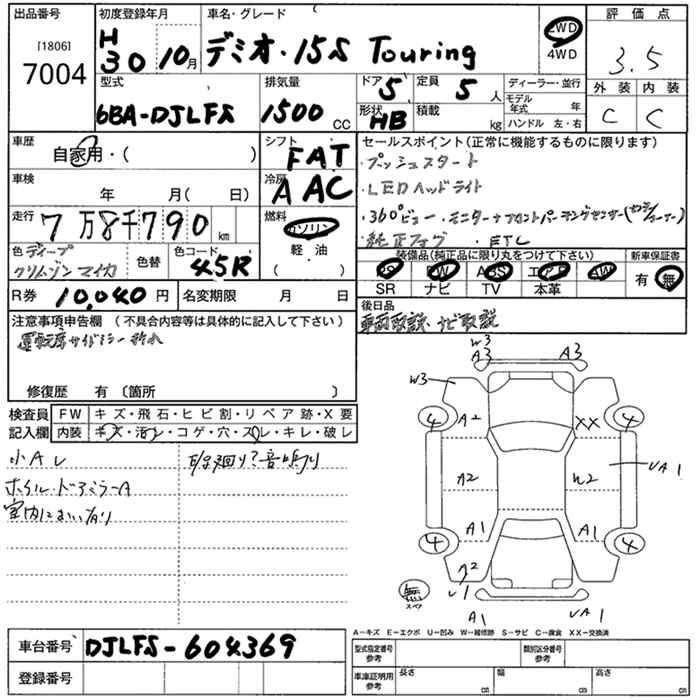 出品番号
[1806]
7004
初度登録年月
H30 10月
車名・グレード
デミオ・15S Touring
2WD
4WD
評価点
3.5
型式
6BA-DJLFS
排気量
1500 CC
ドア
5
定員
5 人
形状
HB
積載
kg
ディーラー・並行
モデル年式 年
ハンドル 左・右
外装 内装
C C
車歴
自家用・( )
シフト
FAT
車検
年 月( 日)
冷房
A AC
走行
7万8千790 km
燃料
ガソリン
軽油
( )
色 ディープ
クリムゾンマイカ
色替
色コード
45R
R券 10,040 円
名変期限 月 日
セールスポイント(正常に機能するものに限ります)
・プッシュスタート
・LEDヘッドライト
・360°ビュー・モニター+フロントパーキングセンサー(センター/コーナー)
・純正フォグ ・ETC
装備品(純正品に限り丸をつけて下さい)
PS PW ABS エアB AW
SR ナビ TV 本革
新車保証書
有・無
後日品
車両取説、ナビ取説
注意事項申告欄 (不具合内容等は具体的に記入して下さい)
運転席サイドミラー折れ
修復歴 有 〔箇所 〕
検査員記入欄
FW キズ・飛石・ヒビ割・リペア跡・X要
内装 キズ・汚レ・コゲ・穴・スレ・キレ・破レ
小Aレ
ホイル・ドアミラーA
室内においあり
音鳴り
W3
A3 A3
W3
4 A2 XX 4
A2 W2 UA1
A1 A1
4 4
A2
U1
A1 UA1
無
スペア
A-キズ E-エクボ U-凹み W-補修跡 S-サビ C-腐食 XX-交換済
車台番号 DJLFS-604369
登録番号
型式指定番号 参考
類別区分番号 参考
車庫証明用 参考
長さ cm
幅 cm
高さ cm